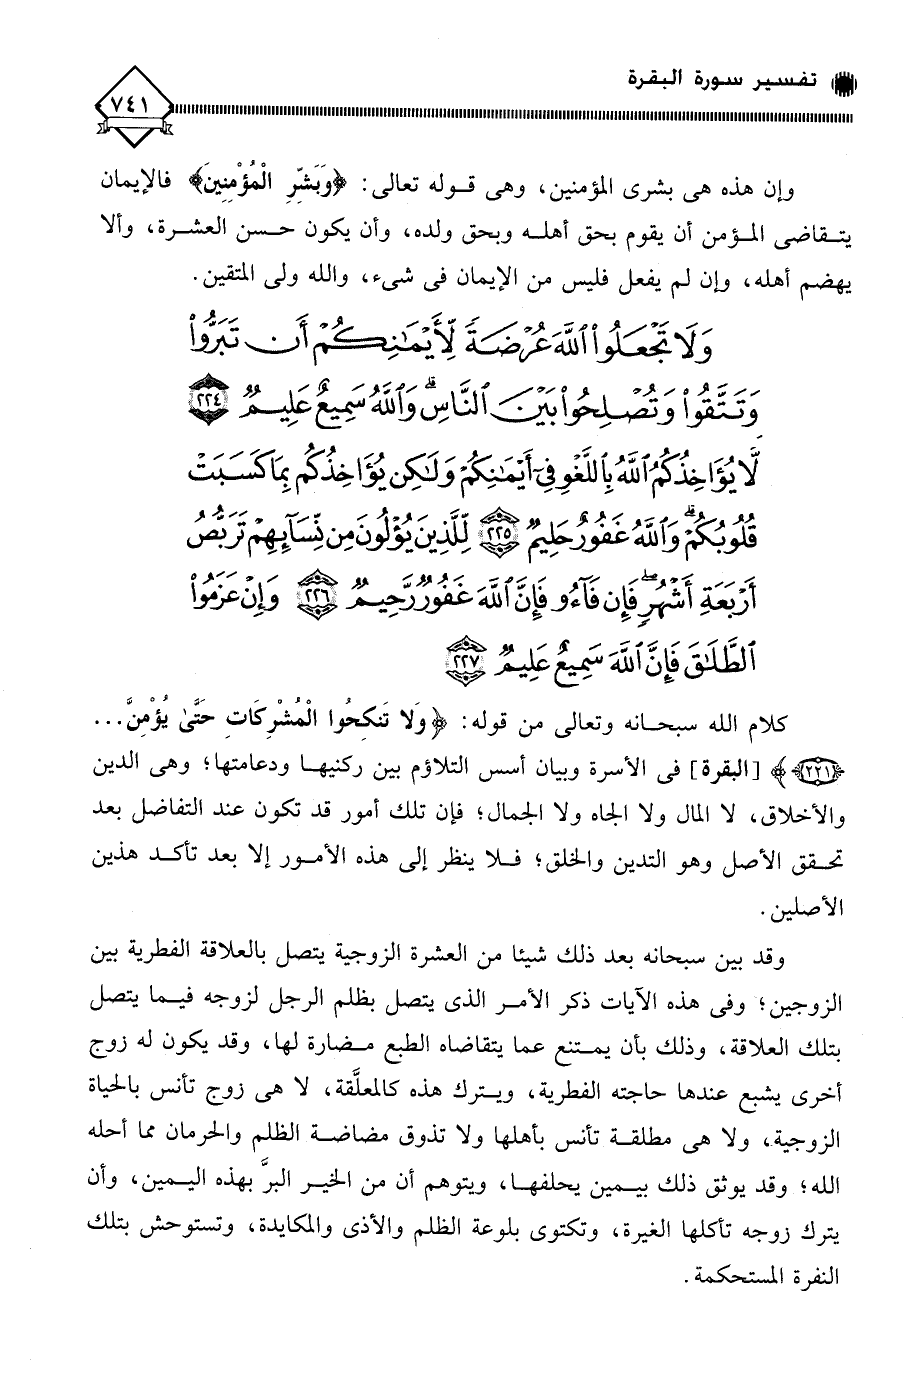 تفسير سورة البقرة
٧٤١
وإن هذه هى بشرى المؤمنين، وهى قوله تعالى: ﴿وَبَشِّرِ الْمُؤْمِنِينَ﴾ فالإيمان
يتقاضى المؤمن أن يقوم بحق أهله وبحق ولده، وأن يكون حسن العشرة، وألا
يهضم أهله، وإن لم يفعل فليس من الإيمان فى شىء، والله ولى المتقين.
وَلَا تَجْعَلُوا۟ ٱللَّهَ عُرْضَةً لِّأَيْمَـٰنِكُمْ أَن تَبَرُّوا۟
وَتَتَّقُوا۟ وَتُصْلِحُوا۟ بَيْنَ ٱلنَّاسِ ۗ وَٱللَّهُ سَمِيعٌ عَلِيمٌ ٢٢٤
لَّا يُؤَاخِذُكُمُ ٱللَّهُ بِٱللَّغْوِ فِىٓ أَيْمَـٰنِكُمْ وَلَـٰكِن يُؤَاخِذُكُم بِمَا كَسَبَتْ
قُلُوبُكُمْ ۗ وَٱللَّهُ غَفُورٌ حَلِيمٌ ٢٢٥ لِّلَّذِينَ يُؤْلُونَ مِن نِّسَآئِهِمْ تَرَبُّصُ
أَرْبَعَةِ أَشْهُرٍ ۖ فَإِن فَآءُو فَإِنَّ ٱللَّهَ غَفُورٌ رَّحِيمٌ ٢٢٦ وَإِنْ عَزَمُوا۟
ٱلطَّلَـٰقَ فَإِنَّ ٱللَّهَ سَمِيعٌ عَلِيمٌ ٢٢٧
كلام الله سبحانه وتعالى من قوله: ﴿وَلا تَنكِحُوا الْمُشْرِكَاتِ حَتَّىٰ يُؤْمِنَّ...
﴿٢٢١﴾﴾ [البقرة] فى الأسرة وبيان أسس التلاؤم بين ركنيها ودعامتها؛ وهى الدين
والأخلاق، لا المال ولا الجاه ولا الجمال؛ فإن تلك أمور قد تكون عند التفاضل بعد
تحقق الأصل وهو التدين والخلق؛ فلا ينظر إلى هذه الأمور إلا بعد تأكد هذين
الأصلين.
وقد بين سبحانه بعد ذلك شيئا من العشرة الزوجية يتصل بالعلاقة الفطرية بين
الزوجين؛ وفى هذه الآيات ذكر الأمر الذى يتصل بظلم الرجل لزوجه فيما يتصل
بتلك العلاقة، وذلك بأن يمتنع عما يتقاضاه الطبع مضارة لها، وقد يكون له زوج
أخرى يشبع عندها حاجته الفطرية، ويترك هذه كالمعلَّقة، لا هى زوج تأنس بالحياة
الزوجية، ولا هى مطلقة تأنس بأهلها ولا تذوق مضاضة الظلم والحرمان مما أحله
الله؛ وقد يوثق ذلك بيمين يحلفها، ويتوهم أن من الخير البرَّ بهذه اليمين، وأن
يترك زوجه تأكلها الغيرة، وتكتوى بلوعة الظلم والأذى والمكايدة، وتستوحش بتلك
النفرة المستحكمة.